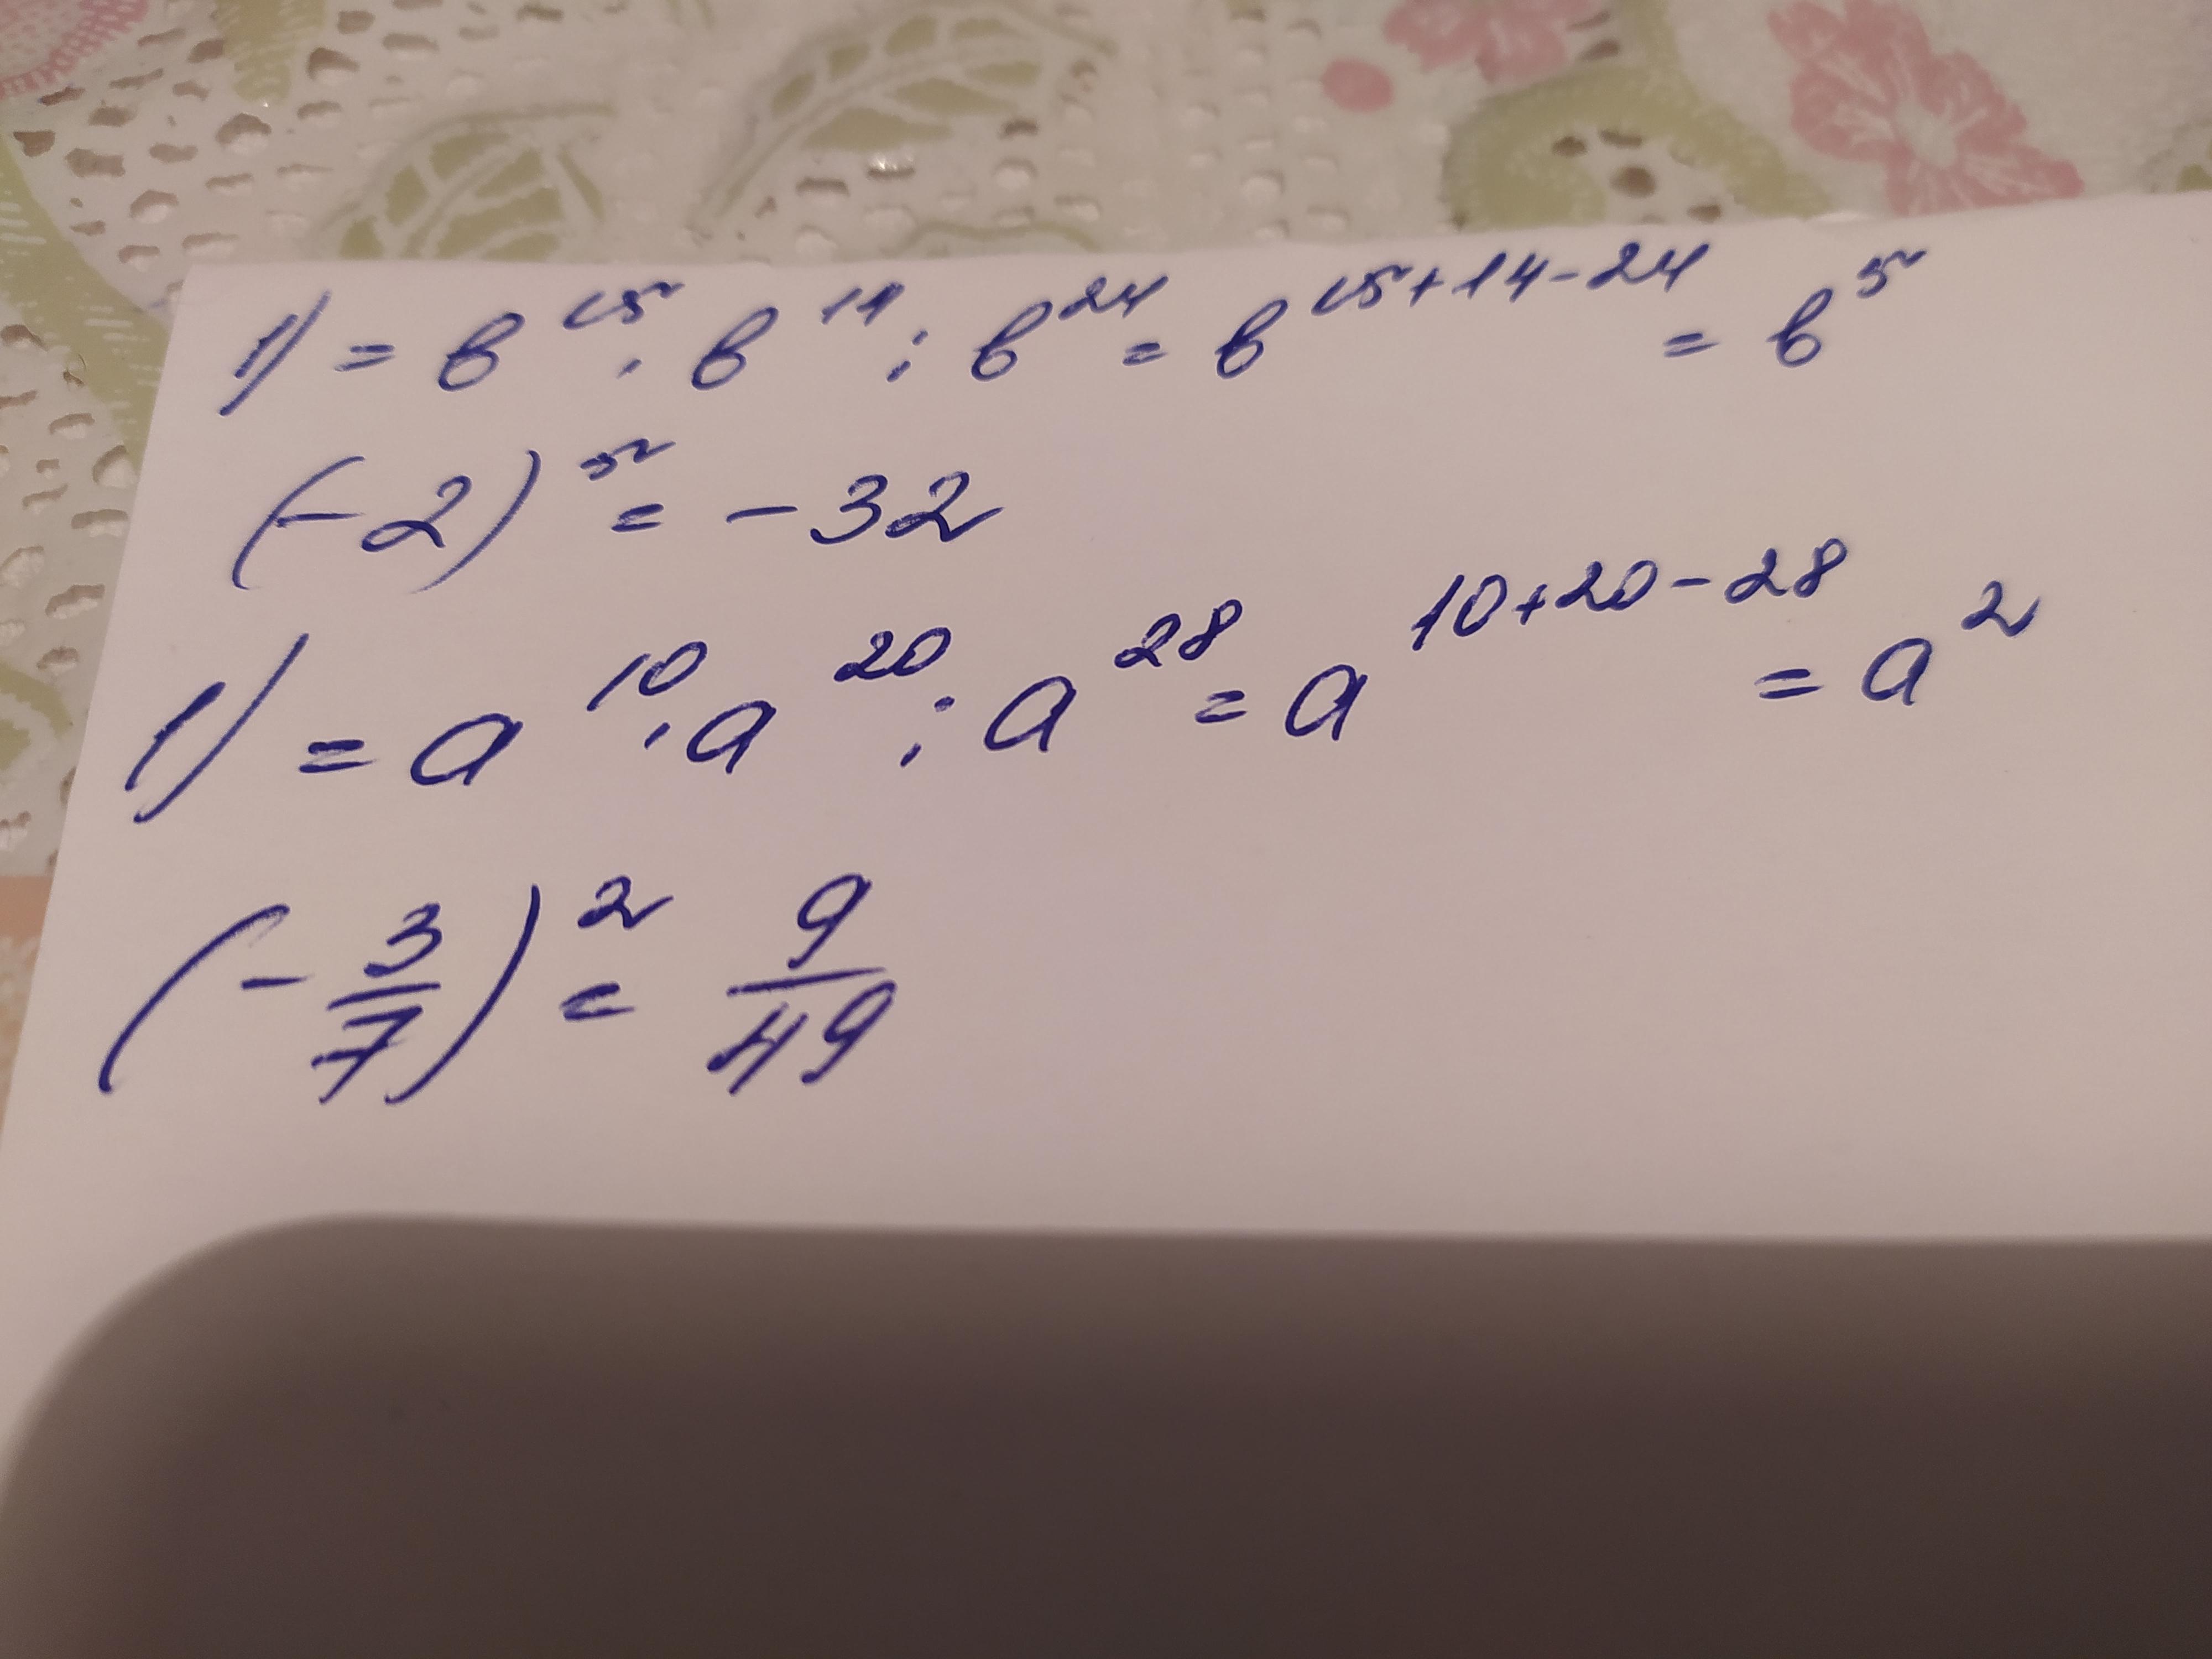 1) = b¹⁵ · b¹⁴ : b²⁴ = b¹⁵⁺¹⁴⁻²⁴ = b⁵
(-2)⁵ = -32
1) = a¹⁰ · a²⁰ : a²⁸ = a¹⁰⁺²⁰⁻²⁸ = a²
(-3/7)² = 9/49